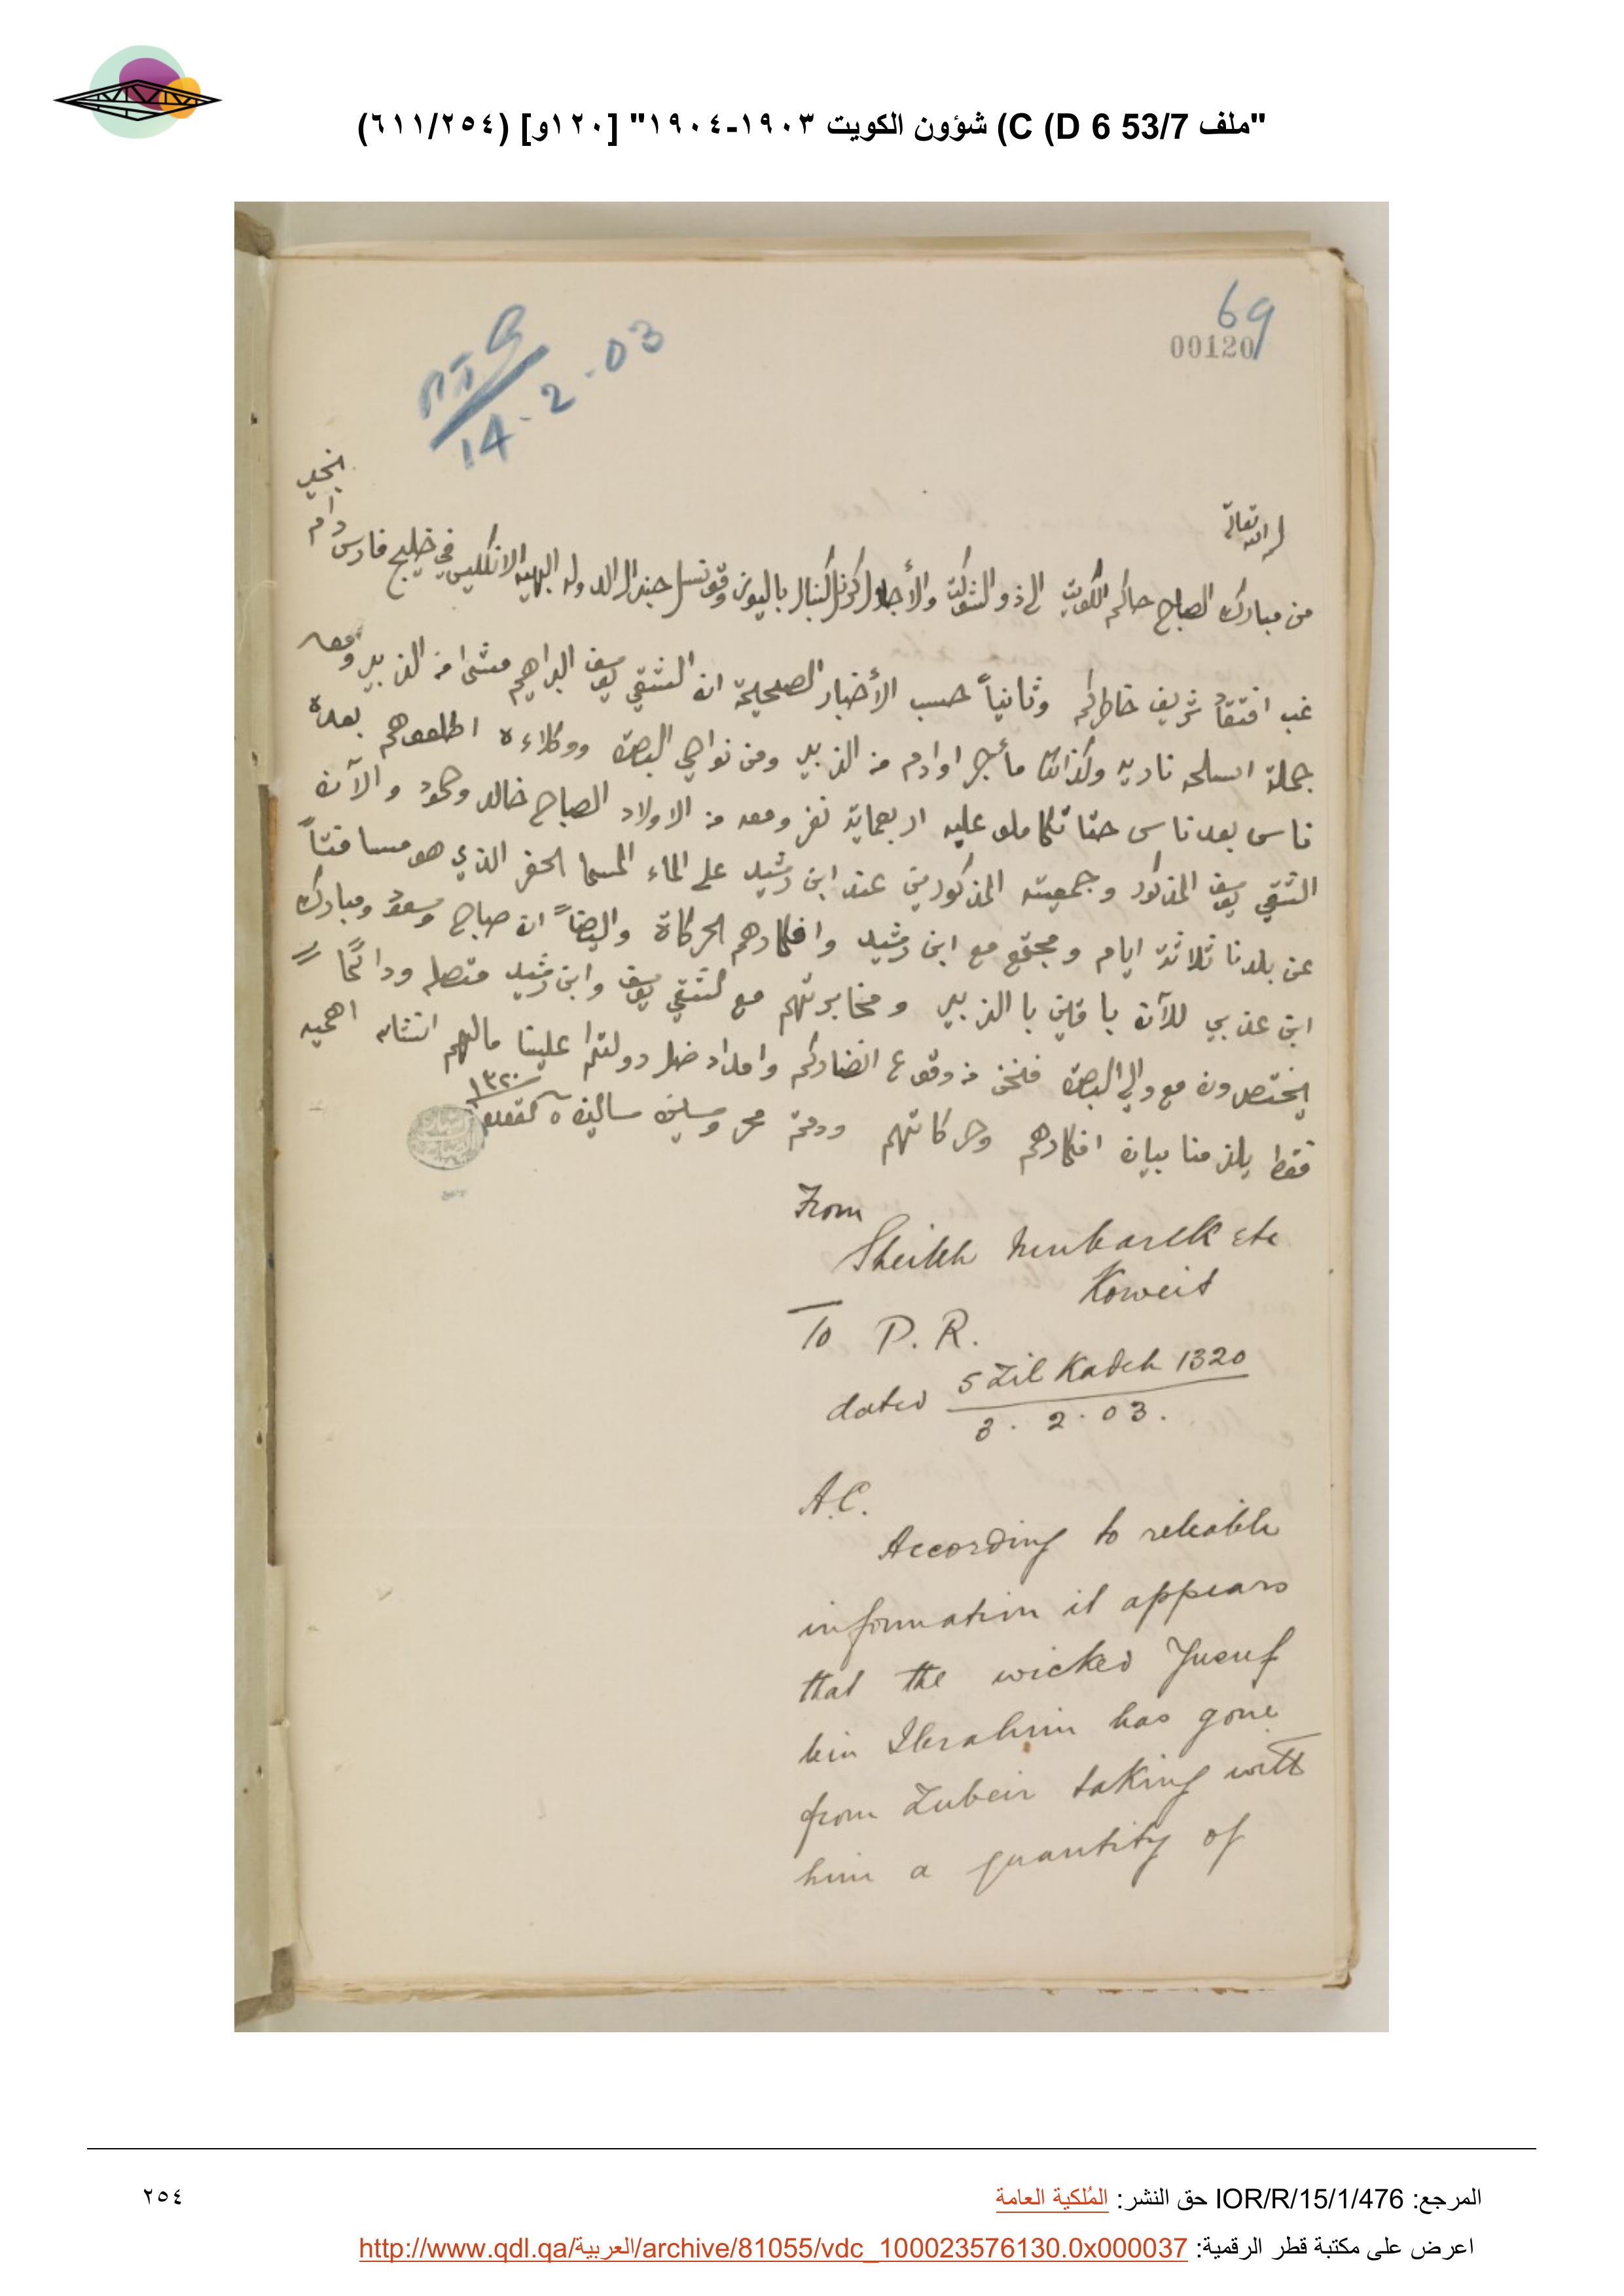 "ملف 53/7 C (D 6) شؤون الكويت ١٩٠٣-١٩٠٤" [١٢٠و] (٦١١/٢٥٤)
69
00120
14-2-03
لله تعالى
بخير
من مبارك الصباح حاكم الكويت الى ذو الشوكت والأجلال كرنل كنبال باليوز وقونسل جنرال الدوله البهيه الانكليس في خليج فارس دام
غب افتقاد شريف خاطركم وثانياً حسب الأخبار الصحيحة ان الشقي يوسف البراهيم مشى من الزبير ومعه
جملة اسلحه ناريه وكذالك مأجر اوادم من الزبير ومن نواحي البصرة ووكلاءه اطلعوهم بعده
ناس بعد ناس حتا تكاملو عليه اربعماية نفر ومعه من الاولاد الصباح خالد وحمود والآن
الشقي يوسف المذكور وجمعيته المذكورين عند ابن رشيد على الماء المسما الحفر الذي هو مسافتاً
عن بلدنا ثلاثة ايام ومجتمع مع ابن رشيد وافكارهم الحركاة وايضاً ان صباح وسعود ومبارك
ابن عذبي للآن باقين بالزبير ومخابرتهم مع الشقي يوسف وابن رشيد متصله ودائماً
يختصرون مع والي البصرة فنحن من وقوع انضاركم وامداد ضل دولتكم علينا مالهم انشاء اهميه
فقط يلزمنا بيان افكارهم وحركاتهم ودمتم محروسين سالمين ٥ القعده ١٣٢٠
From
Sheikh Mubarek etc
Koweit
To P. R.
dated 5 Zil Kadeh 1320
3. 2. 03.
A.C.
According to reliable
information it appears
that the wicked Yusuf
bin Ibrahim has gone
from Zubeir taking with
him a quantity of
المرجع: IOR/R/15/1/476 حق النشر: المُلكية العامة
٢٥٤
اعرض على مكتبة قطر الرقمية: http://www.qdl.qa/العربية/archive/81055/vdc_100023576130.0x000037